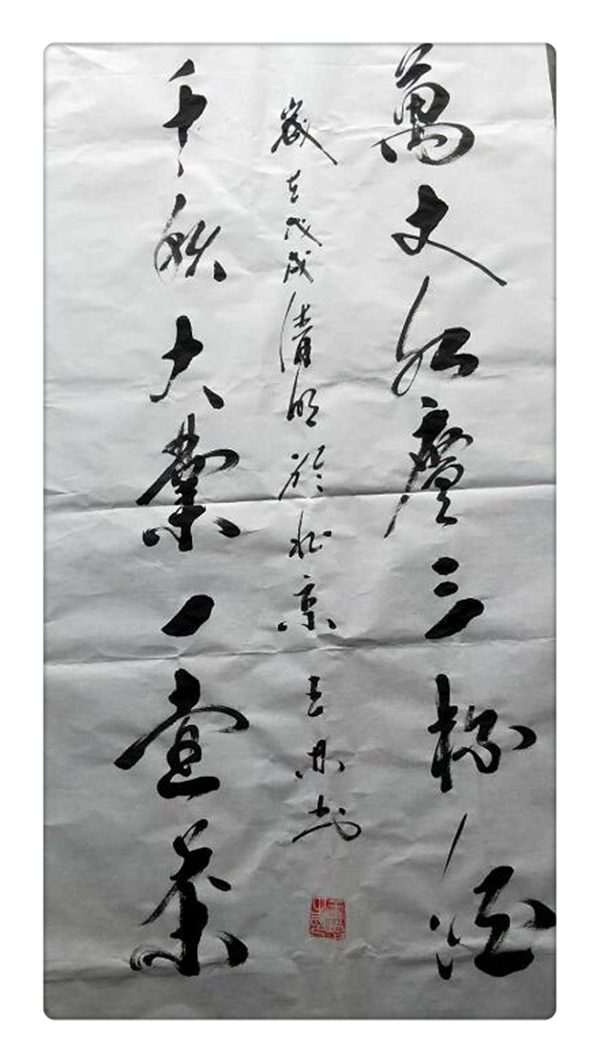 萬丈红塵三杯酒
千秋大業一壺茶
歲在戊戌清明於北京